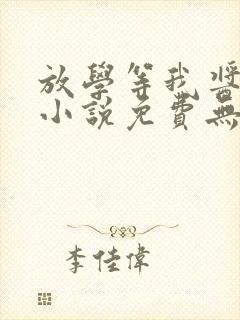 放學等我醬
小說免費無
李佳偉